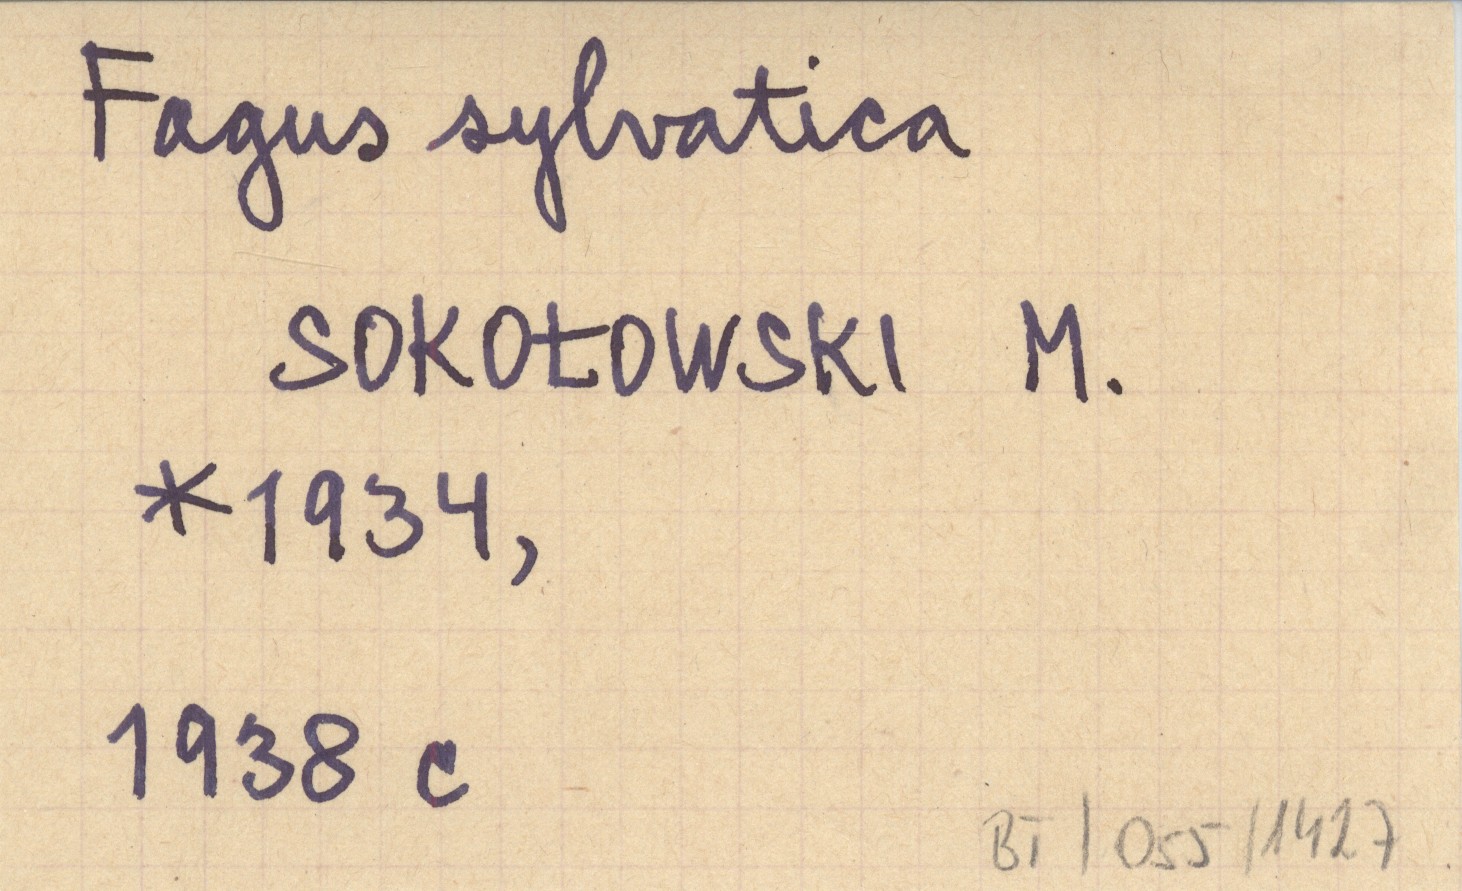 Fagus sylvatica
SOKOŁOWSKI M.
*1934,
1938 c
BT/055/1427